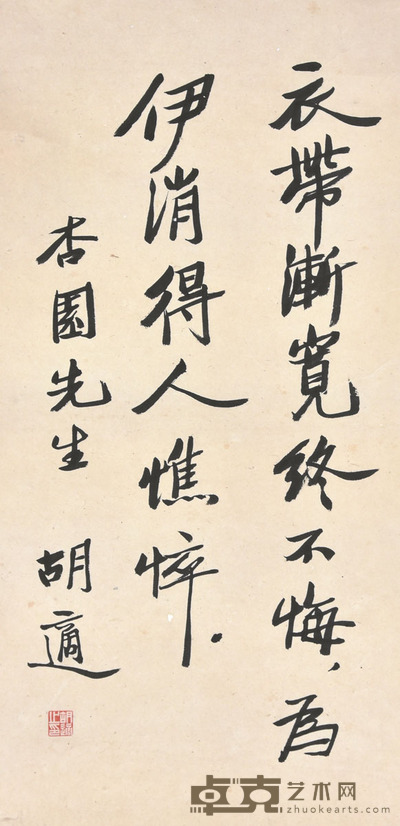 衣帶漸寬終不悔、為
伊消得人憔悴．
杏園先生
胡適
卓克艺术网
zhuokearts.com